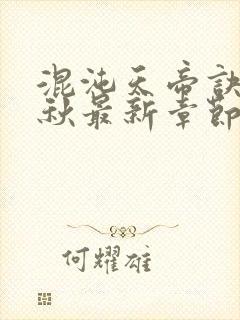 混沌天帝诀
秋最新章节
何耀雄